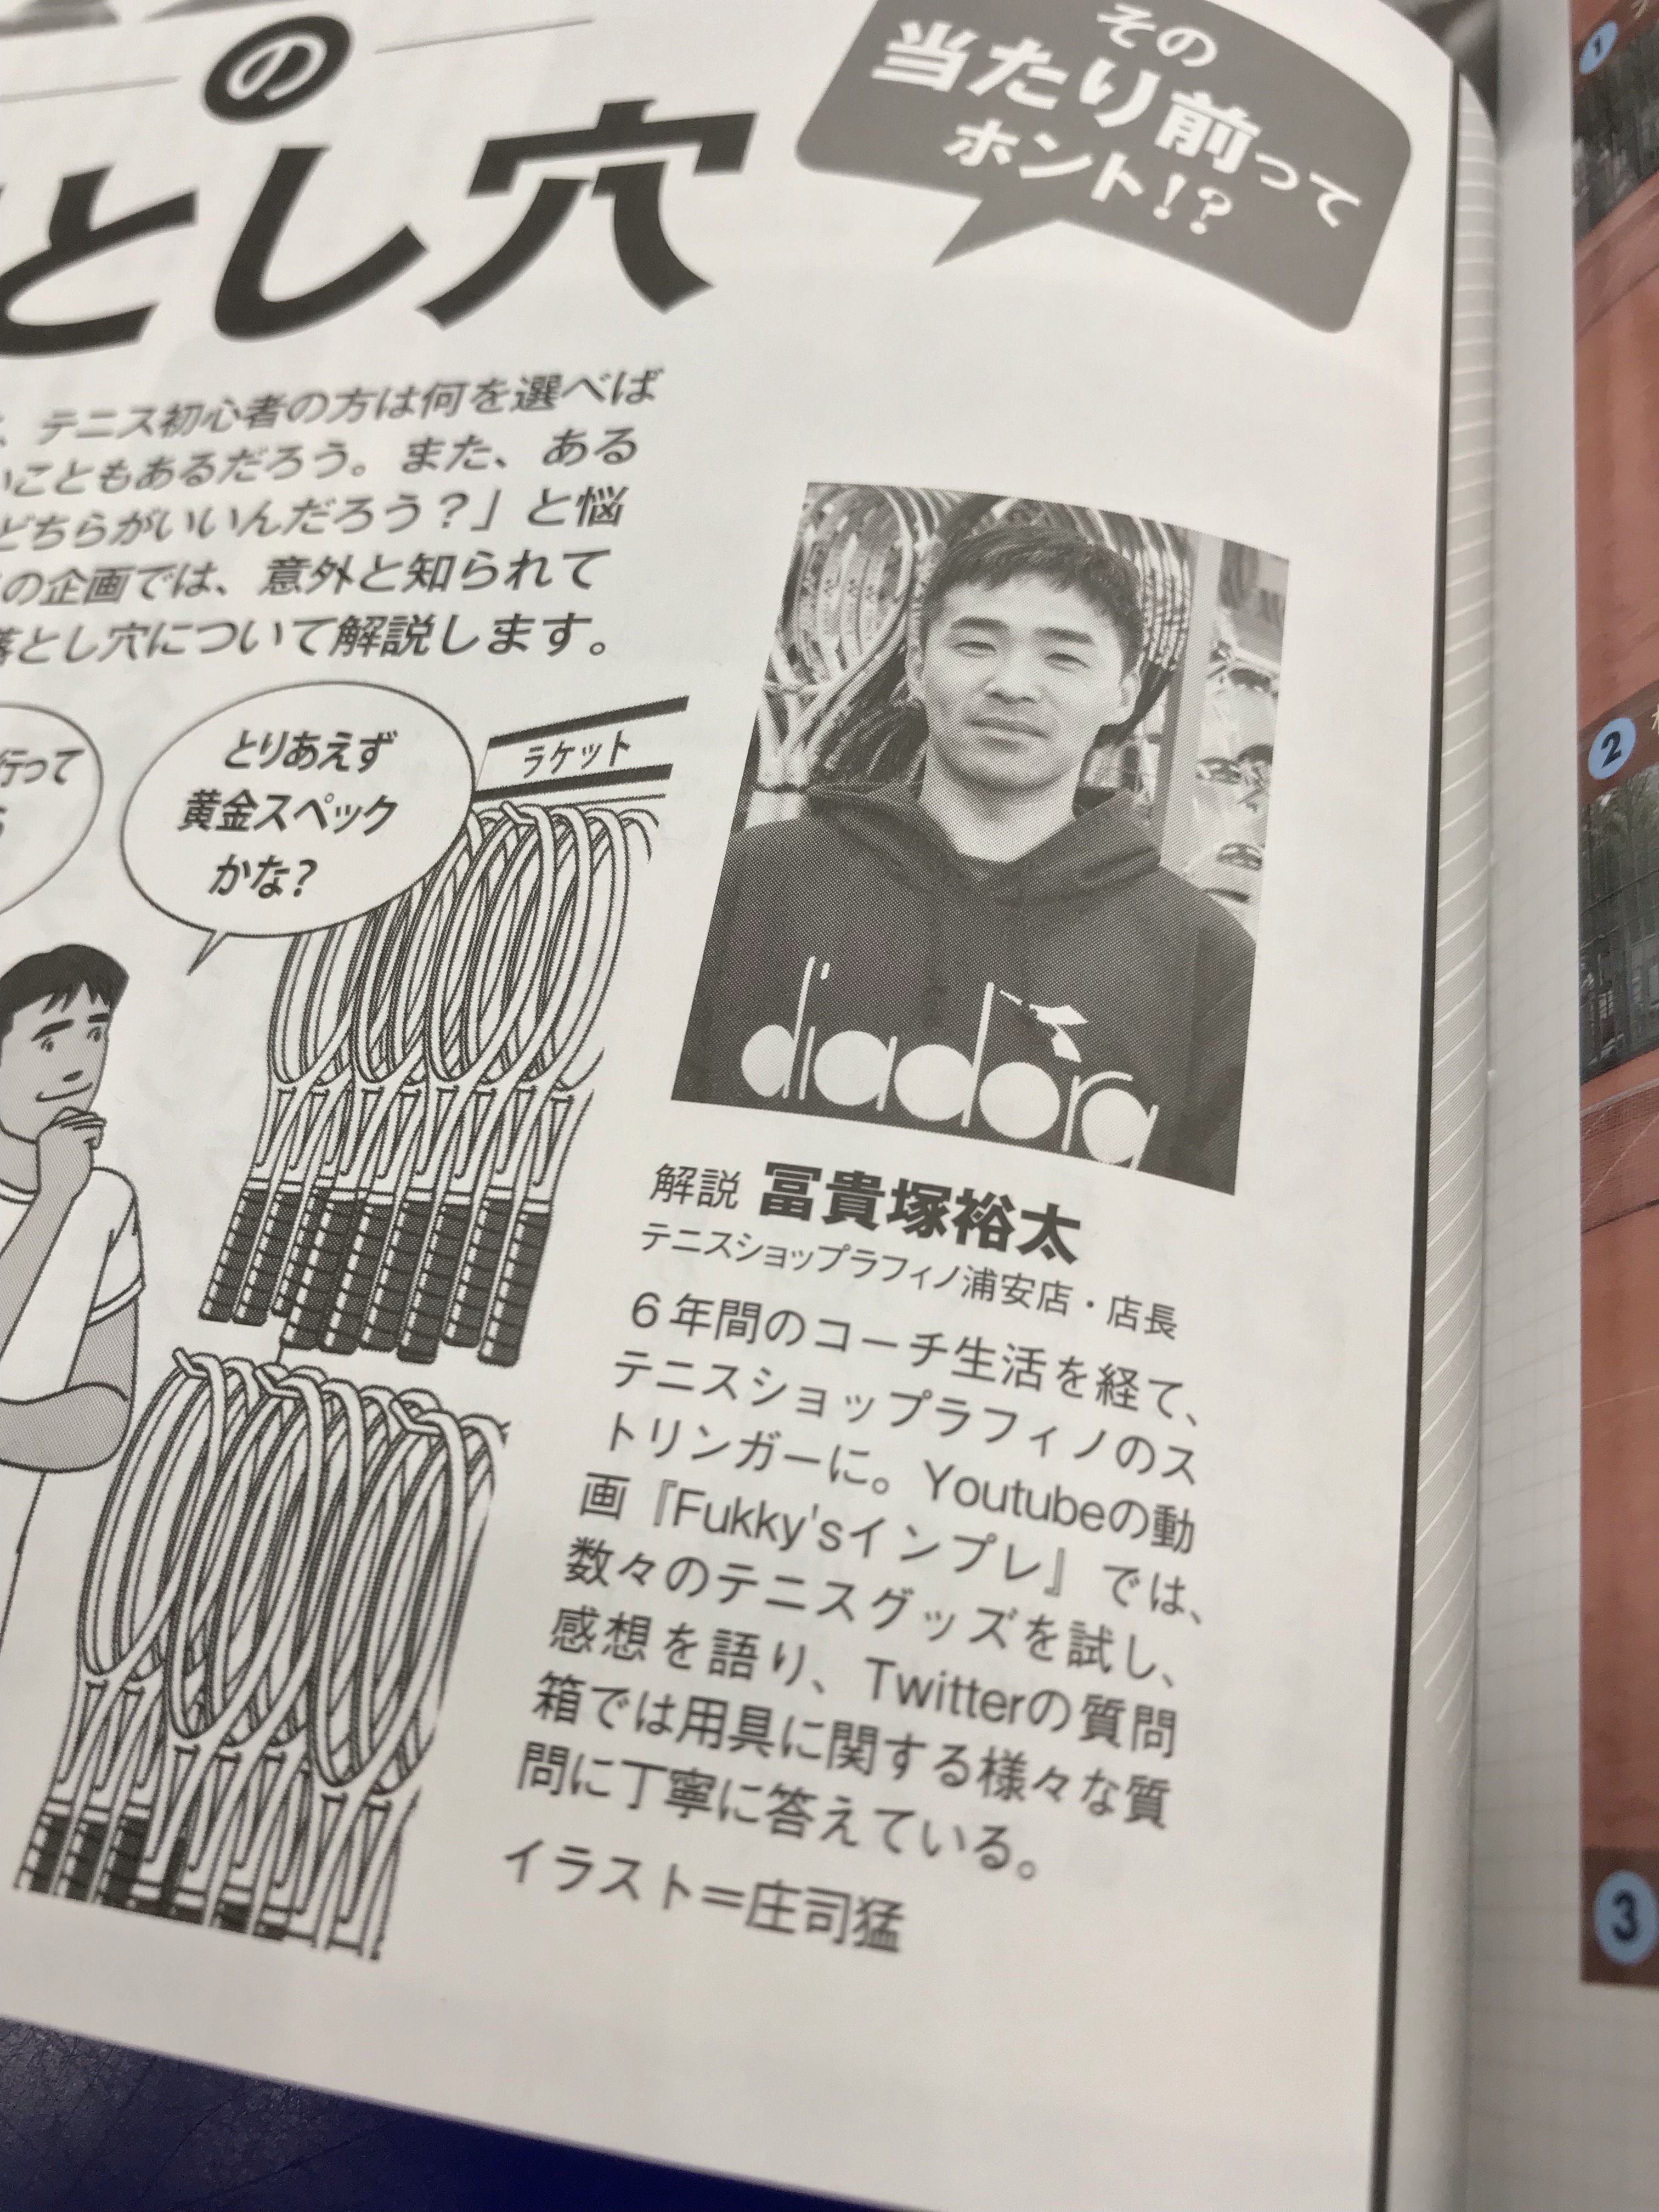 の
とし穴
その
当たり前って
ホント!?
、テニス初心者の方は何を選べば
こともあるだろう。また、ある
どちらがいいんだろう？」と悩
の企画では、意外と知られて
落とし穴について解説します。
行って
とりあえず
黄金スペック
かな?
ラケット
diadora
解説 冨貴塚裕太
テニスショップラフィノ浦安店・店長
6年間のコーチ生活を経て、
テニスショップラフィノのス
トリンガーに。Youtubeの動
画『Fukky'sインプレ』では、
数々のテニスグッズを試し、
感想を語り、Twitterの質問
箱では用具に関する様々な質
問に丁寧に答えている。
イラスト＝庄司猛
1
2
3